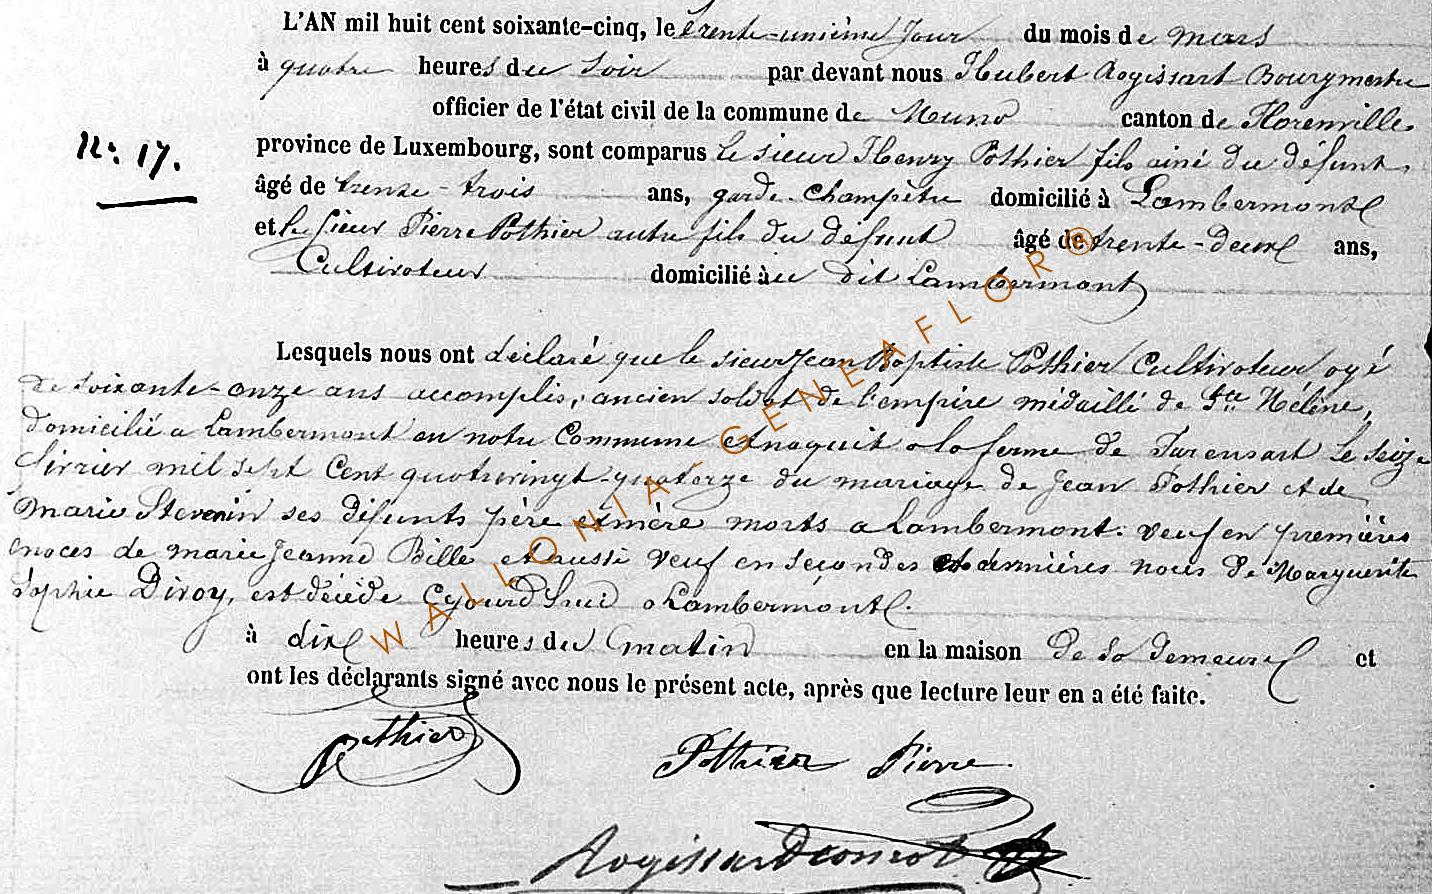 L'AN mil huit cent soixante-cinq, le trente-unième jour du mois de mars
à quatre heures du soir par devant nous Hubert Rogissart Bourgmestre
officier de l'état civil de la commune de Muno canton de Florenville
N.° 17.
province de Luxembourg, sont comparus le sieur Henry Pothier fils ainé du défunt,
âgé de trente-trois ans, garde-champêtre domicilié à Lambermont
et le sieur Pierre Pothier autre fils du défunt âgé de trente-deux ans,
Cultivateur domicilié à au dit Lambermont
Lesquels nous ont déclaré que le sieur Jean Baptiste Pothier Cultivateur agé
de soixante-onze ans accomplis, ancien soldat de l'empire médaillé de Ste Hélène,
domicilié a Lambermont en notre Commune et naquit a la ferme de Parensart le seize
février mil sept Cent quatrevingt-quatorze du mariage de Jean Pothier et de
Marie Stevenin ses défunts père et mère morts a Lambermont. veuf en premières
noces de marie Jeanne Bille et aussi veuf en secondes et dernières noces de Marguerite
Sophie Diroy, est décédé Cejourd'hui a Lambermont.
à dix heures du matin en la maison de sa demeure et
ont les déclarants signé avec nous le présent acte, après que lecture leur en a été faite.
Pothier
Pothier Pierre.
Rogissart
WALLONIA-GENEAFLOR®